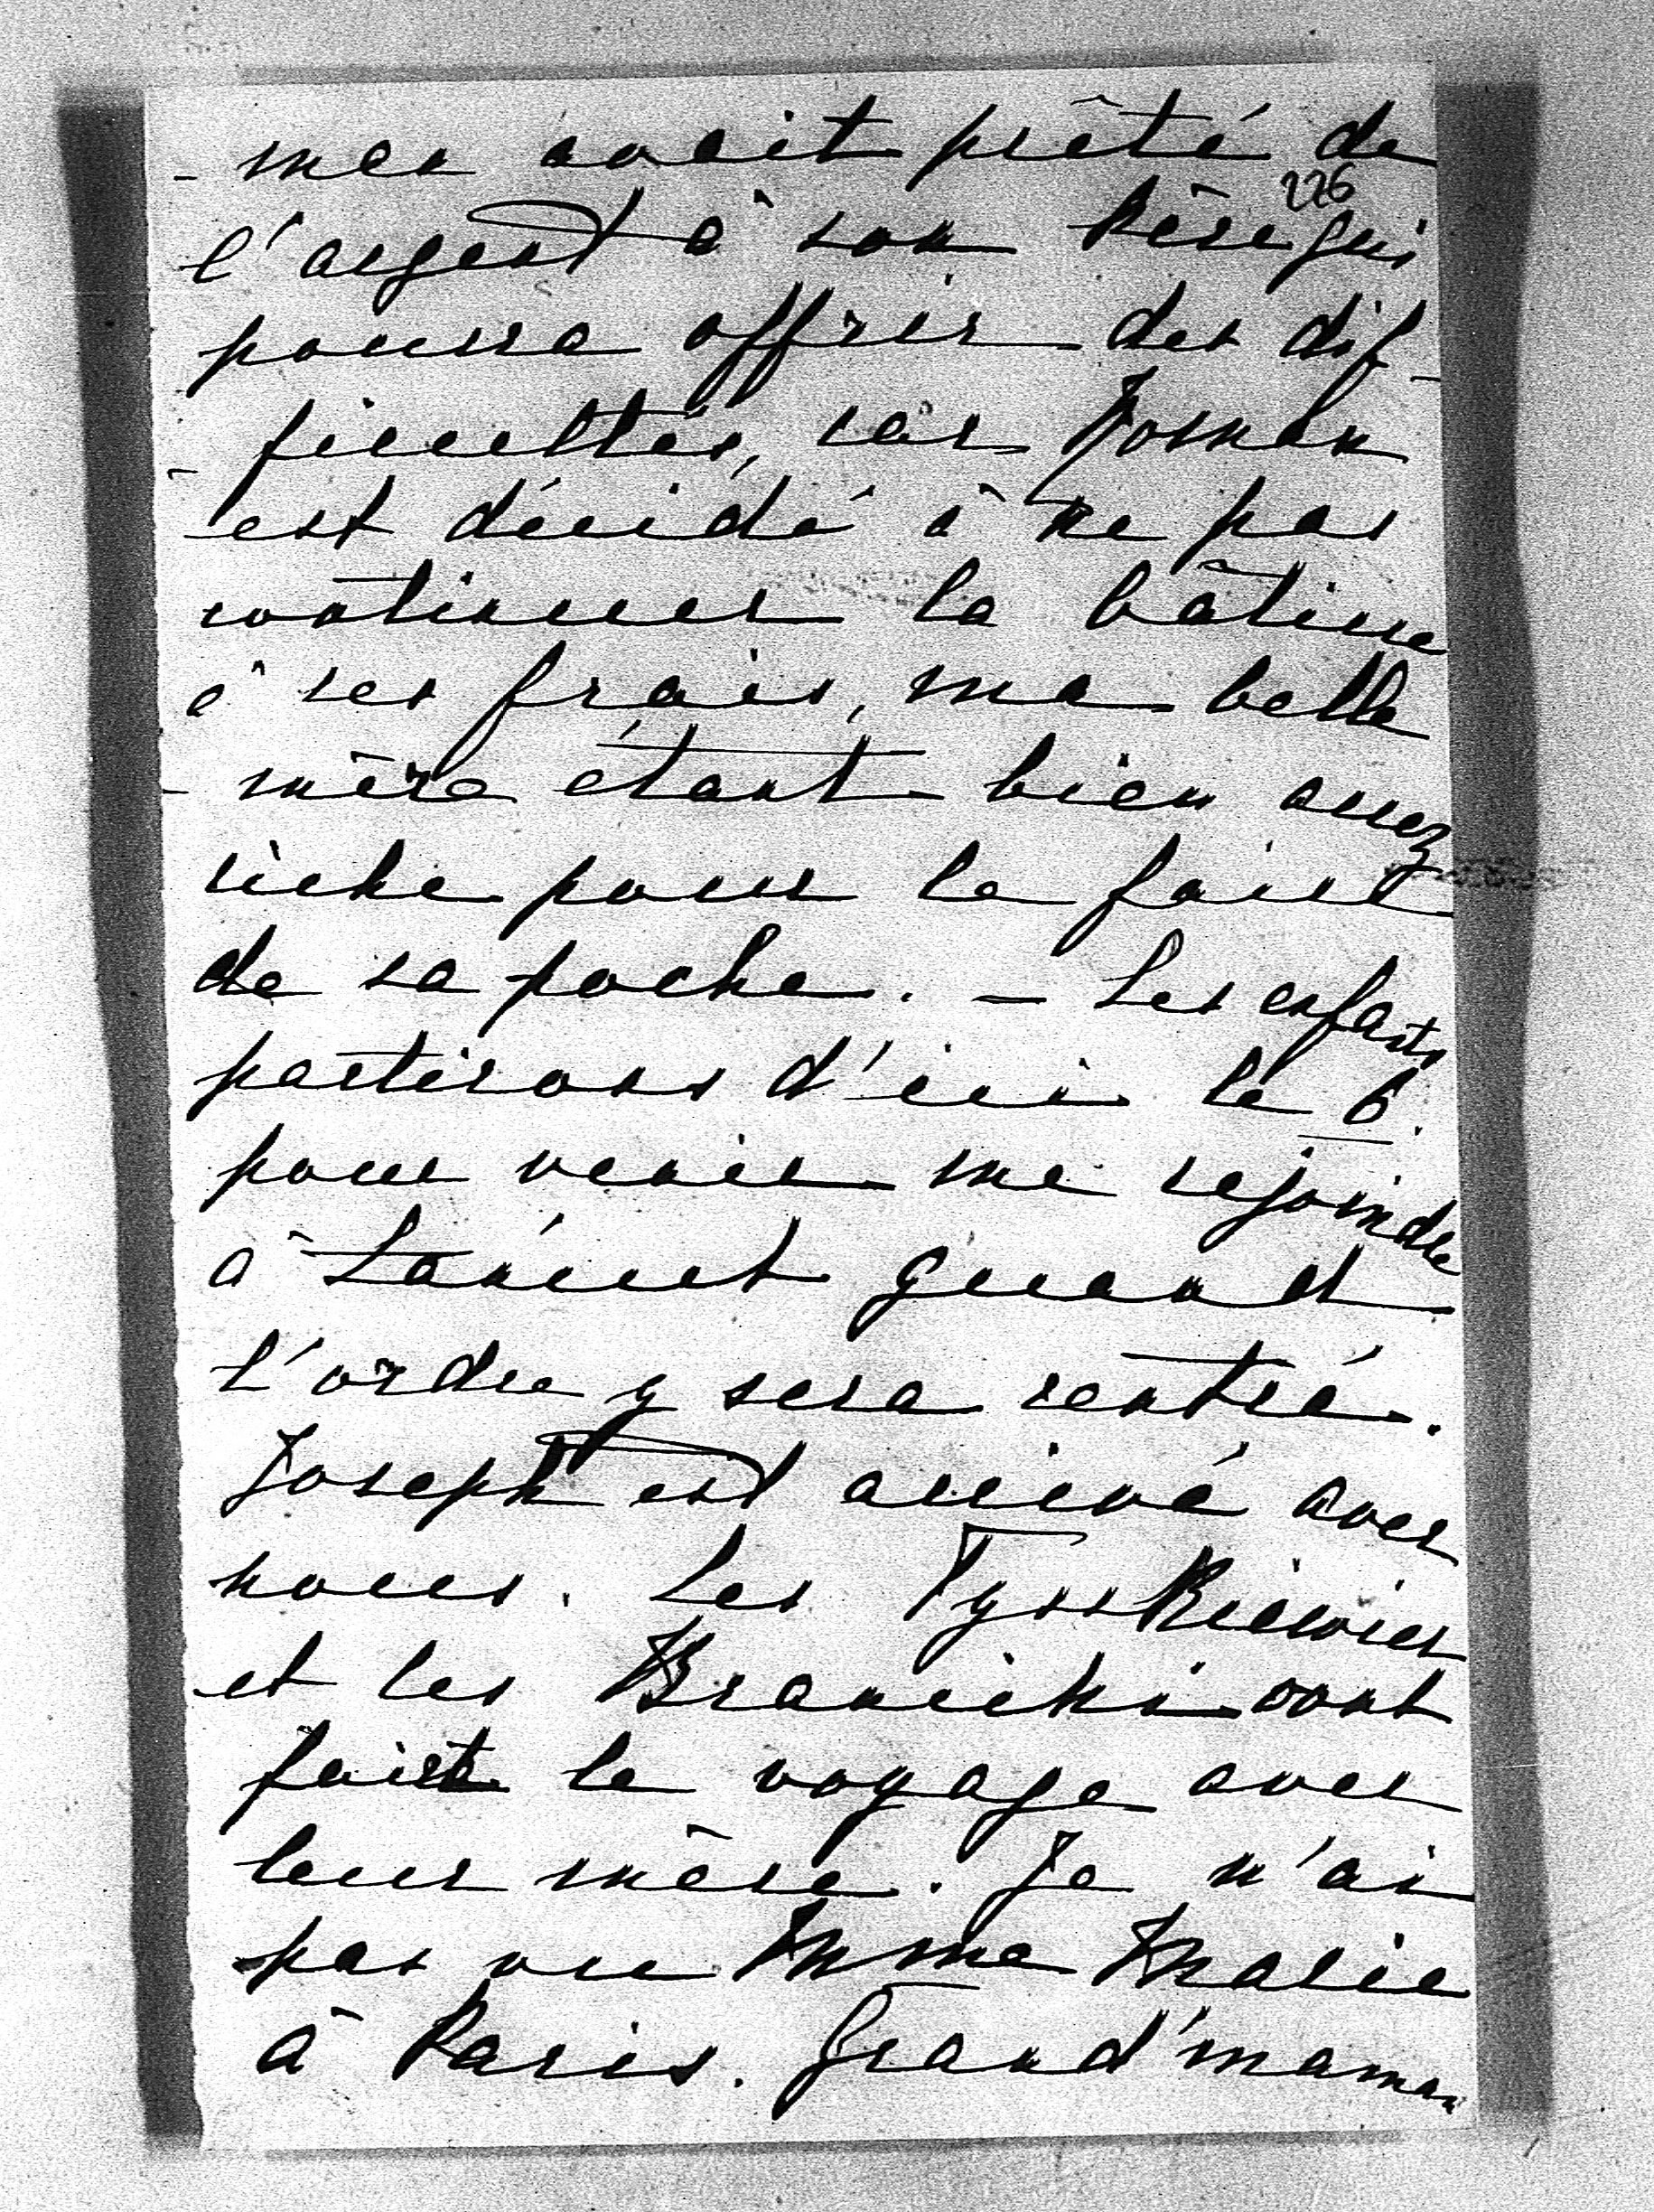 - mes avait prêté de
226
l'argent à son Père qui
pourra offrir des dif-
- ficultés, car Roman
est décidé à ne pas
continuer la bâtisse
à ses frais, ma belle
- mère étant bien assez
riche pour le faire
de sa poche. – Les enfants
partirons d'ici le 6.
pour venir me rejoindre
à Lancut quand
l'ordre y sera rentré.
Joseph est arrivé avec
nous. Les Tysskiewicz
et les Branicki ont
fait le voyage avec
leur mère. Je n'ai
pas vu Mme Marie
à Paris. Grand'maman